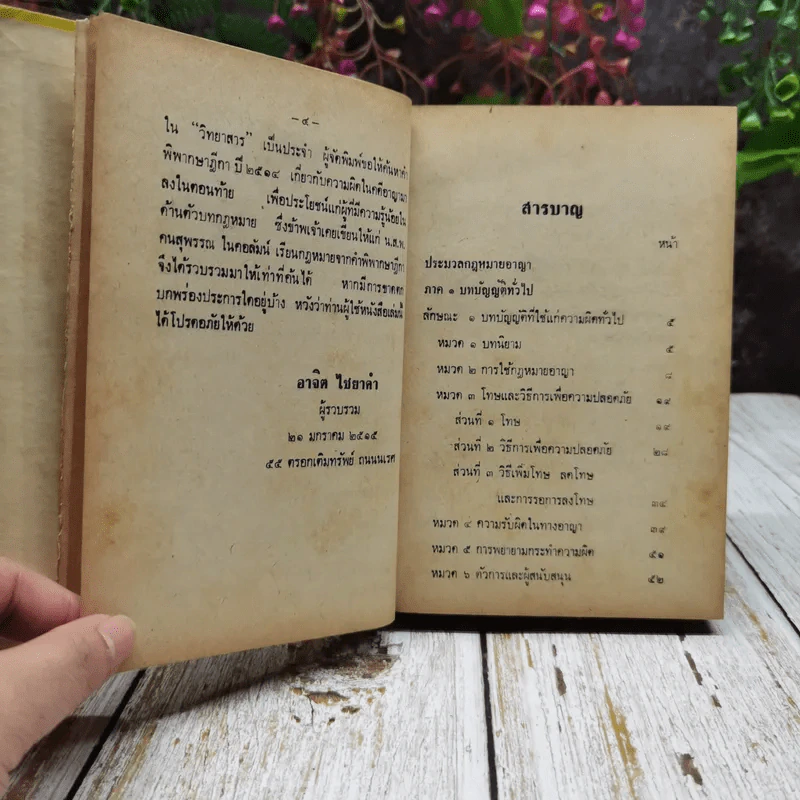 – ๔ –
ใน “วิทยาสาร” เป็นประจำ ผู้จัดพิมพ์ขอให้ค้นหาคำ
พิพากษาฎีกา ปี ๒๕๑๔ เกี่ยวกับความผิดในคดีอาญามา
ลงในตอนท้าย เพื่อประโยชน์แก่ผู้ที่มีความรู้น้อยใน
ด้านตัวบทกฎหมาย ซึ่งข้าพเจ้าเคยเขียนให้แก่ น.ส.พ.
คนสุพรรณ ในคอลัมน์ เรียนกฎหมายจากคำพิพากษาฎีกา
จึงได้รวบรวมมาให้เท่าที่ค้นได้ หากมีการขาดตก
บกพร่องประการใดอยู่บ้าง หวังว่าท่านผู้ใช้หนังสือเล่มนี้
ได้โปรดอภัยให้ด้วย
อาจิต ไชยาคำ
ผู้รวบรวม
๒๑ มกราคม ๒๕๑๕
๕๕ ตรอกเติมทรัพย์ ถนนนเรศ
สารบาญ
หน้า
ประมวลกฎหมายอาญา
ภาค ๑ บทบัญญัติทั่วไป
ลักษณะ ๑ บทบัญญัติที่ใช้แก่ความผิดทั่วไป ๕
หมวด ๑ บทนิยาม ๕
หมวด ๒ การใช้กฎหมายอาญา ๘
หมวด ๓ โทษและวิธีการเพื่อความปลอดภัย ๑๔
ส่วนที่ ๑ โทษ ๑๔
ส่วนที่ ๒ วิธีการเพื่อความปลอดภัย ๒๘
ส่วนที่ ๓ วิธีเพิ่มโทษ ลดโทษ
และการรอการลงโทษ ๓๔
หมวด ๔ ความรับผิดในทางอาญา ๓๙
หมวด ๕ การพยายามกระทำความผิด ๕๑
หมวด ๖ ตัวการและผู้สนับสนุน ๕๒